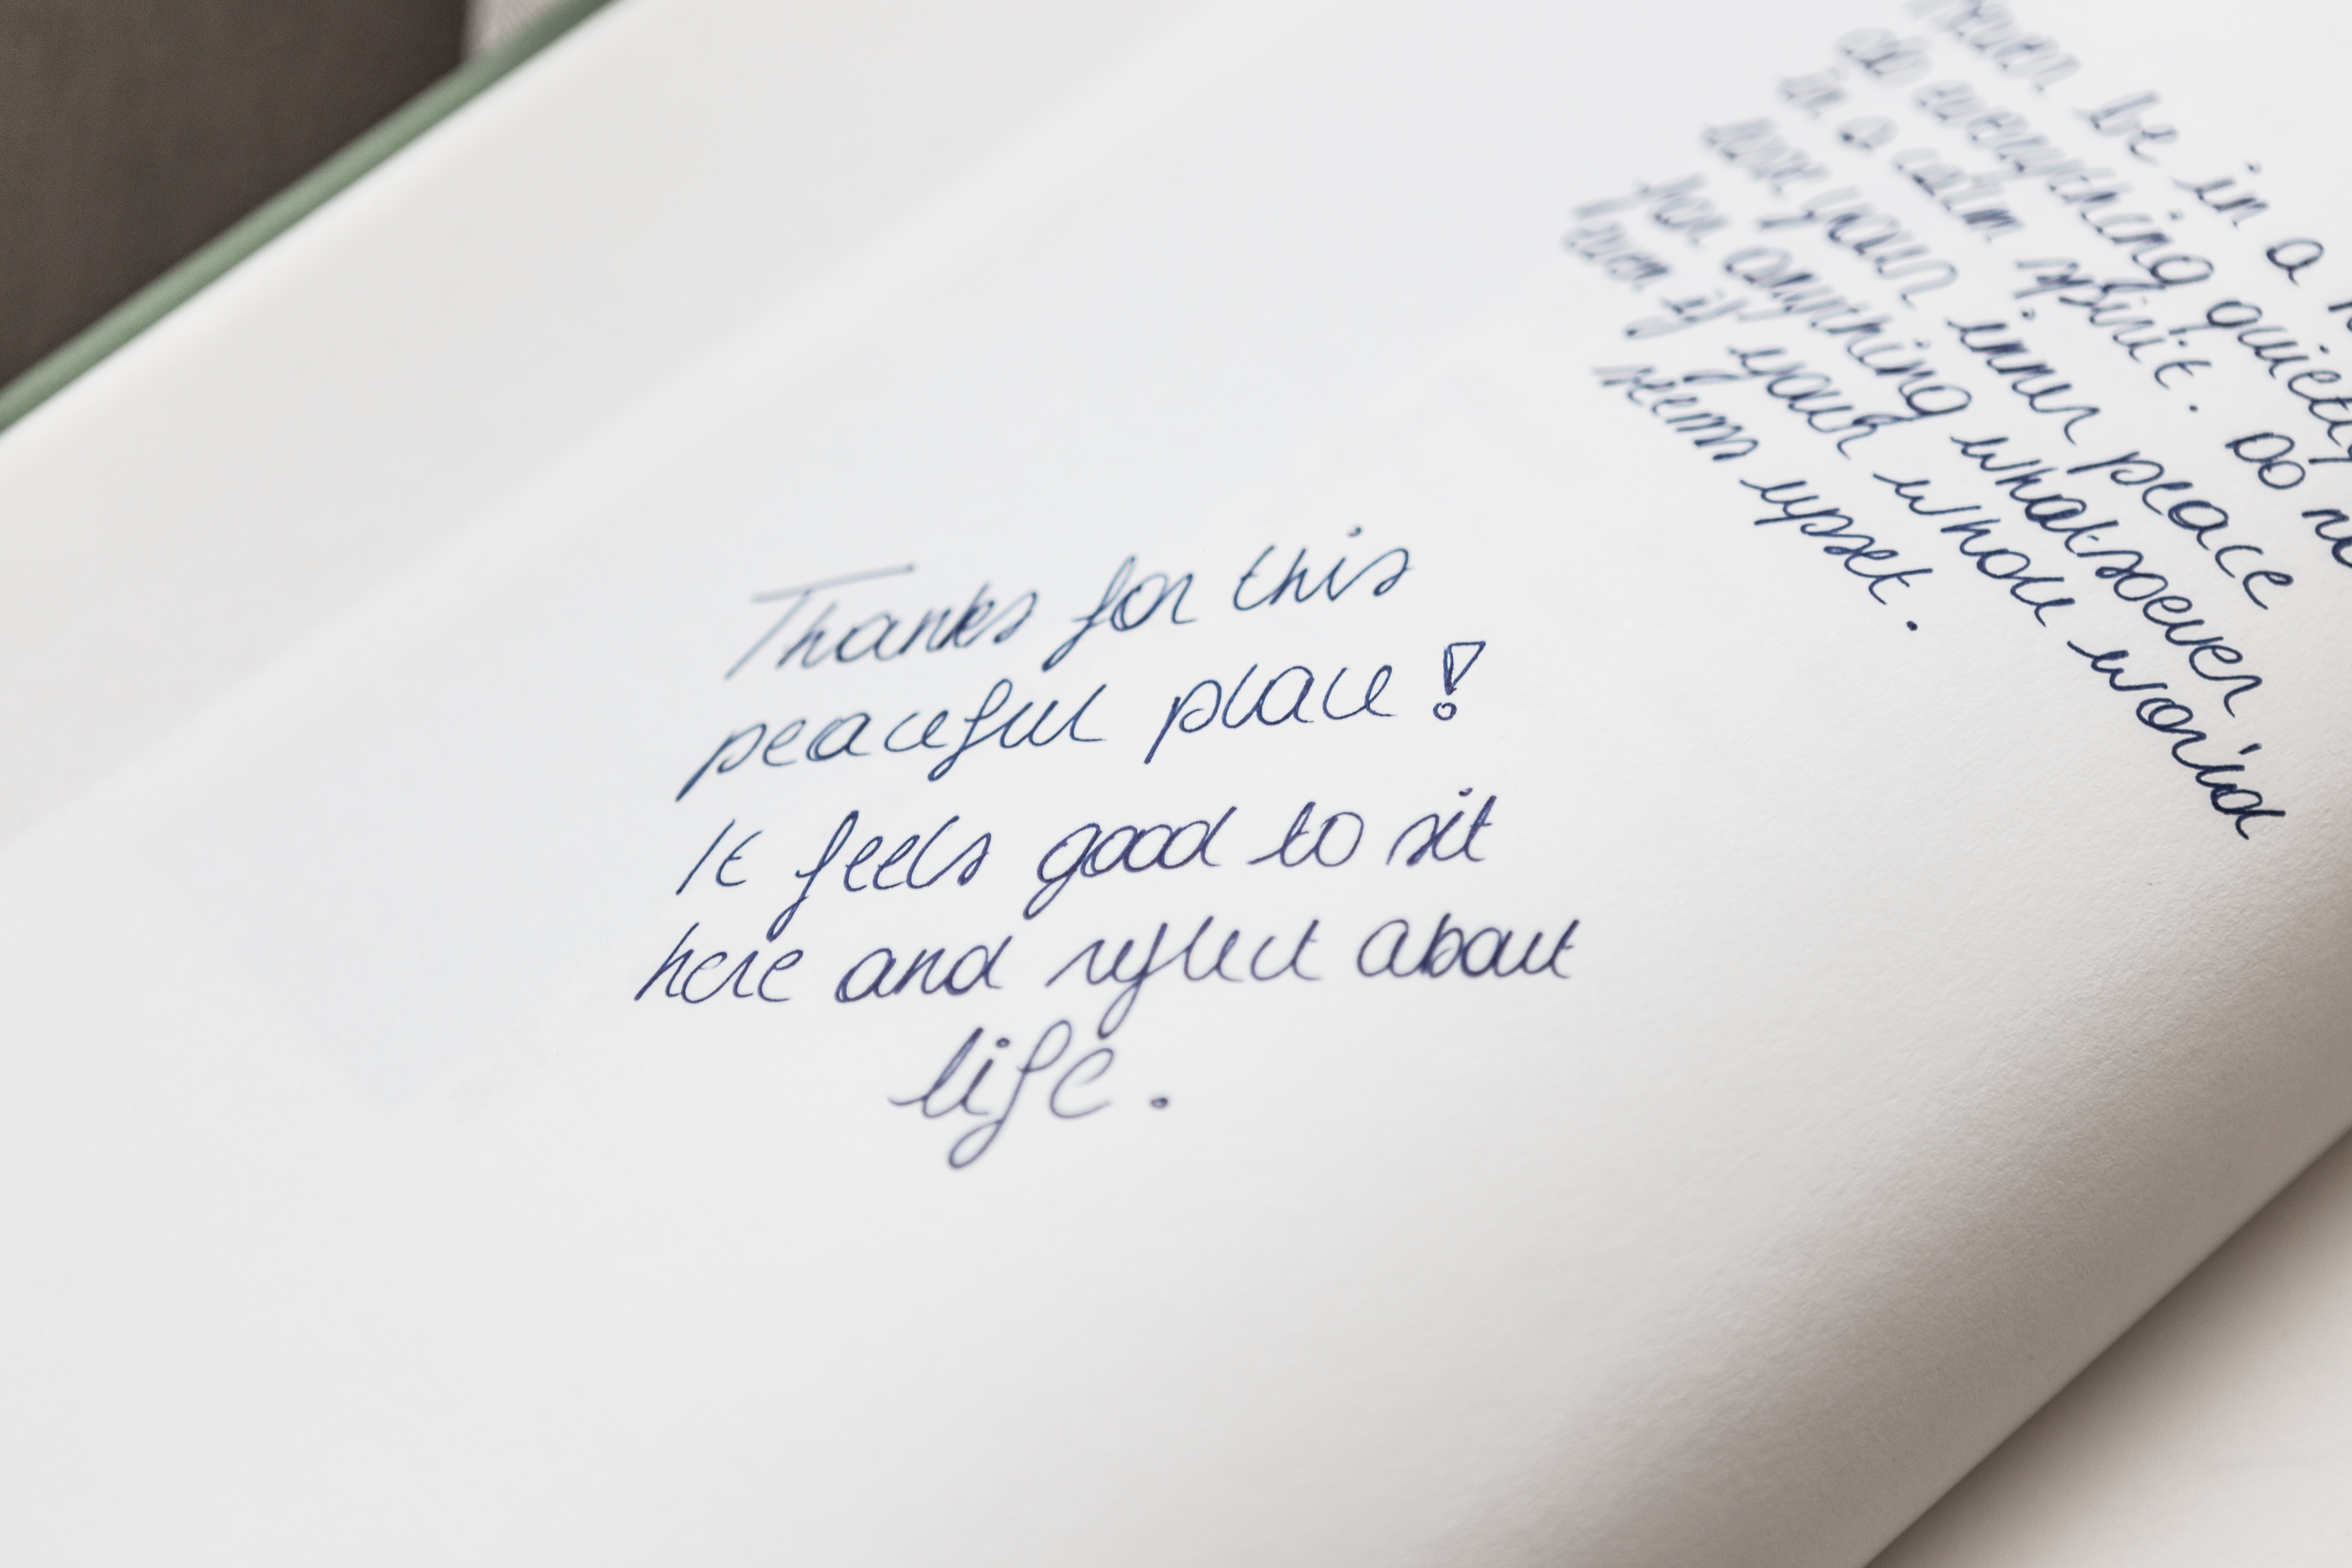 Thanks for this
peaceful place!
It feels good to sit
here and reflect about
life.
never be in a
do everything quietly
in a calm spirit. Do
lose your inner peace
for anything whatsoever
even if your whole world
seems upset.